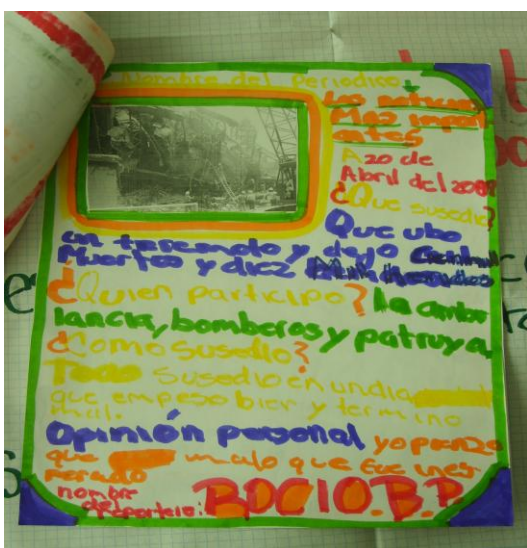 Nombre del periodico:
Las noticias
Maz import
antes
A 20 de
Abril del 2009
¿Que susedio?
Que ubo
un teremoto y dejo
Muertos y diez
¿Quien participo? la ambu
lancia, bomberos y patruya.
¿Como susedio?
Todo susedio en un dia
que empeso bien y termino
mal.
Opinión personal yo pienzo
que malo que fue ines
perado
nombre
del reportero: ROCIO.B.P.